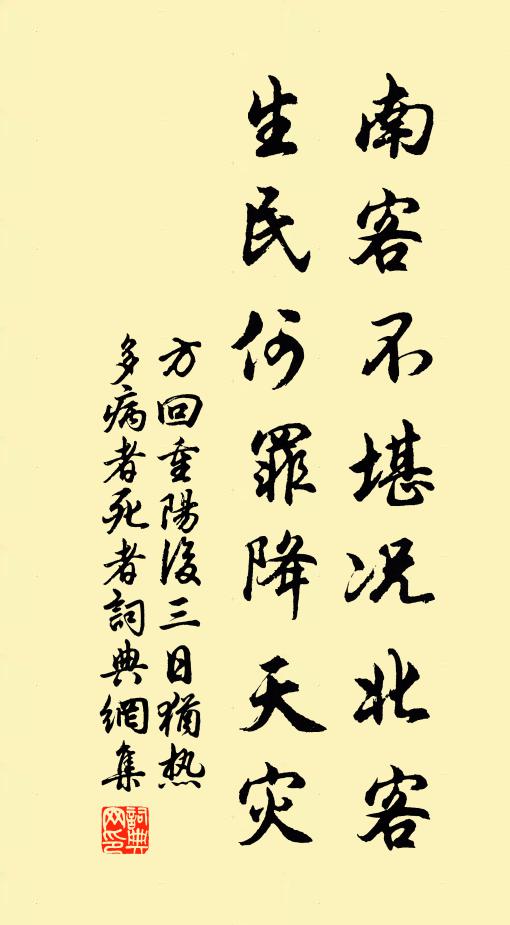 南客不堪况北客
生民何罪降天灾
方回重陽後三日猶热
多病者死者詞典網集
詞典
网印